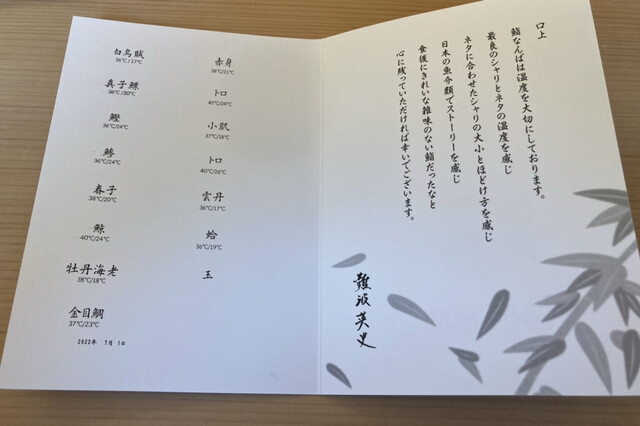 白烏賊
36℃/17℃
真子鰈
36℃/20℃
鰹
36℃/24℃
鯵
36℃/24℃
春子
38℃/20℃
鯨
40℃/24℃
牡丹海老
38℃/18℃
金目鯛
37℃/23℃
2022年 7月 1日
赤身
38℃/21℃
トロ
40℃/24℃
小肌
37℃/18℃
トロ
40℃/26℃
雲丹
36℃/17℃
蛤
36℃/19℃
玉
口上
鮨なんばは温度を大切にしております。
最良のシャリとネタの温度を感じ
ネタに合わせたシャリの大小とほどけ方を感じ
日本の魚介類でストーリーを感じ
食後にきれいな雑味のない鮨だったなと
心に残っていただければ幸いでございます。
難波英史